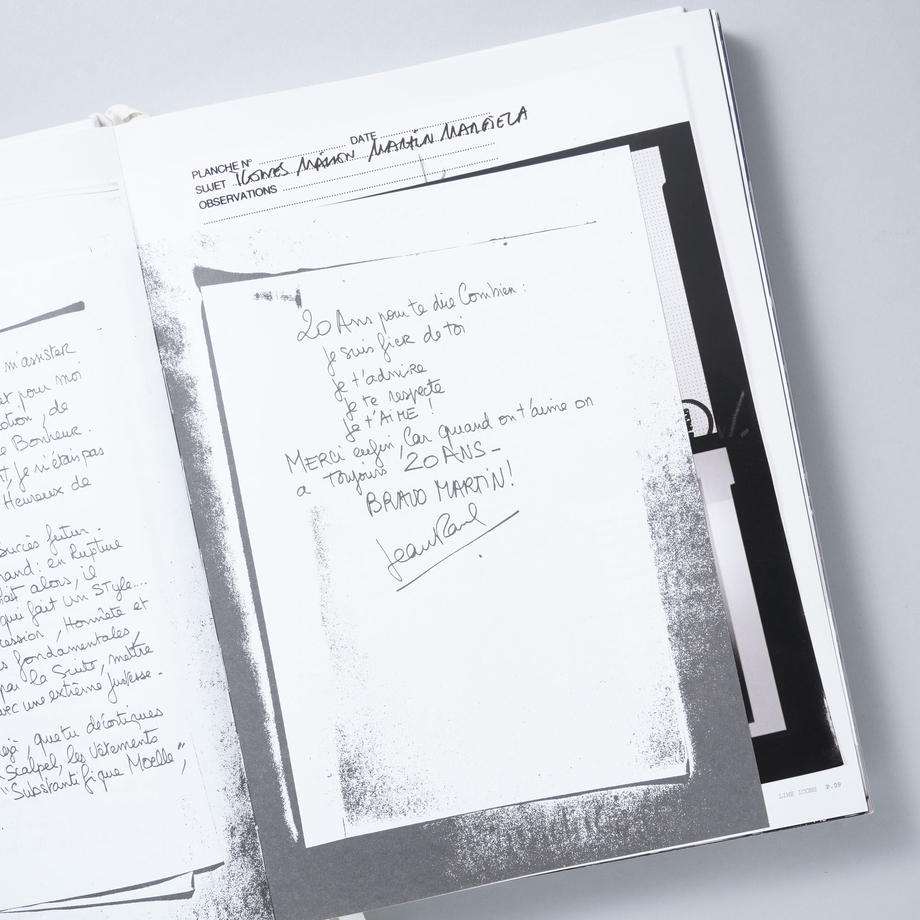 m'assister
et pour moi
de
Bonheur.
je n'étais pas
Heureux de
Succès futur.
: en Rupture
alors, il
qui fait un Style....
, Honnête et
fondamentales,
par la Suite, mettre
avec une extrême justesse.
, que tu décortiques
Scalpel, les Vêtements
"Substantifique Moelle",
PLANCHE N° DATE
SUJET ICONES MAISON MARTIN MARGIELA
OBSERVATIONS
20 Ans pour te dire Combien :
je suis fier de toi
je t'admire
je te respecte
je t'AIME !
MERCI enfin, Car quand on t'aime on
a Toujours 20 ANS -
BRAVO MARTIN!
Jean Paul
LIME ICONS P.09